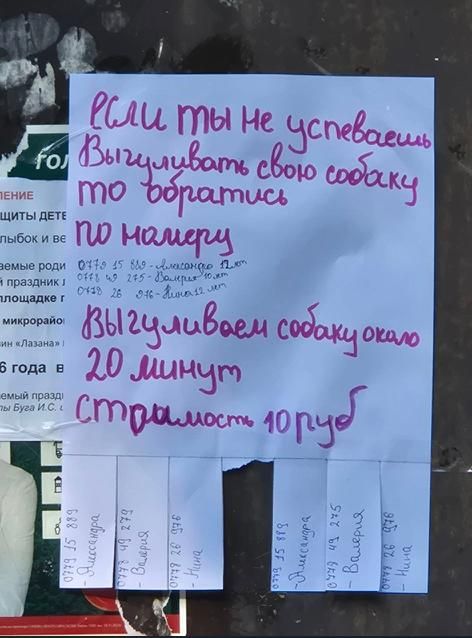 если ты не успеваешь
Выгуливать свою собаку
то обратись
по номеру
0779 15 889 - Александра 12 лет
0778 49 275 - Валерия 10 лет
0778 26 976 - Нина 12 лет
Выгуливаем собаку около
20 минут
стоимость 10 руб
0779 15 889
- Александра
0778 49 279
- Валерия
0778 26 976
- Нина
0779 15 889
- Александра
0778 49 275
- Валерия
0778 26 976
- Нина
ГОЛ
ЛЕНИЕ
ЩИТЫ ДЕТЕ
лыбок и ве
аемые роди
й праздник
площадке
микрорайо
зин «Лазана»
6 года в
аемый празд
лы Буга И.С. и